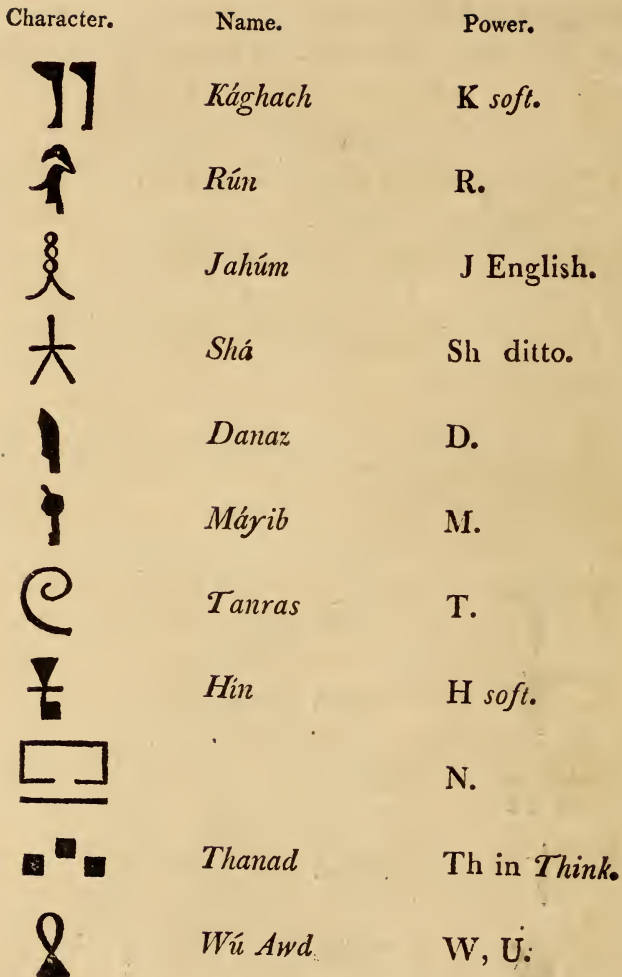 Character. Name. Power.
Kághach K soft.
Rún R.
Jahúm J English.
Shá Sh ditto.
Danaz D.
Máyib M.
Tanras T.
Hín H soft.
N.
Thanad Th in Think.
Wú Awd W, U.